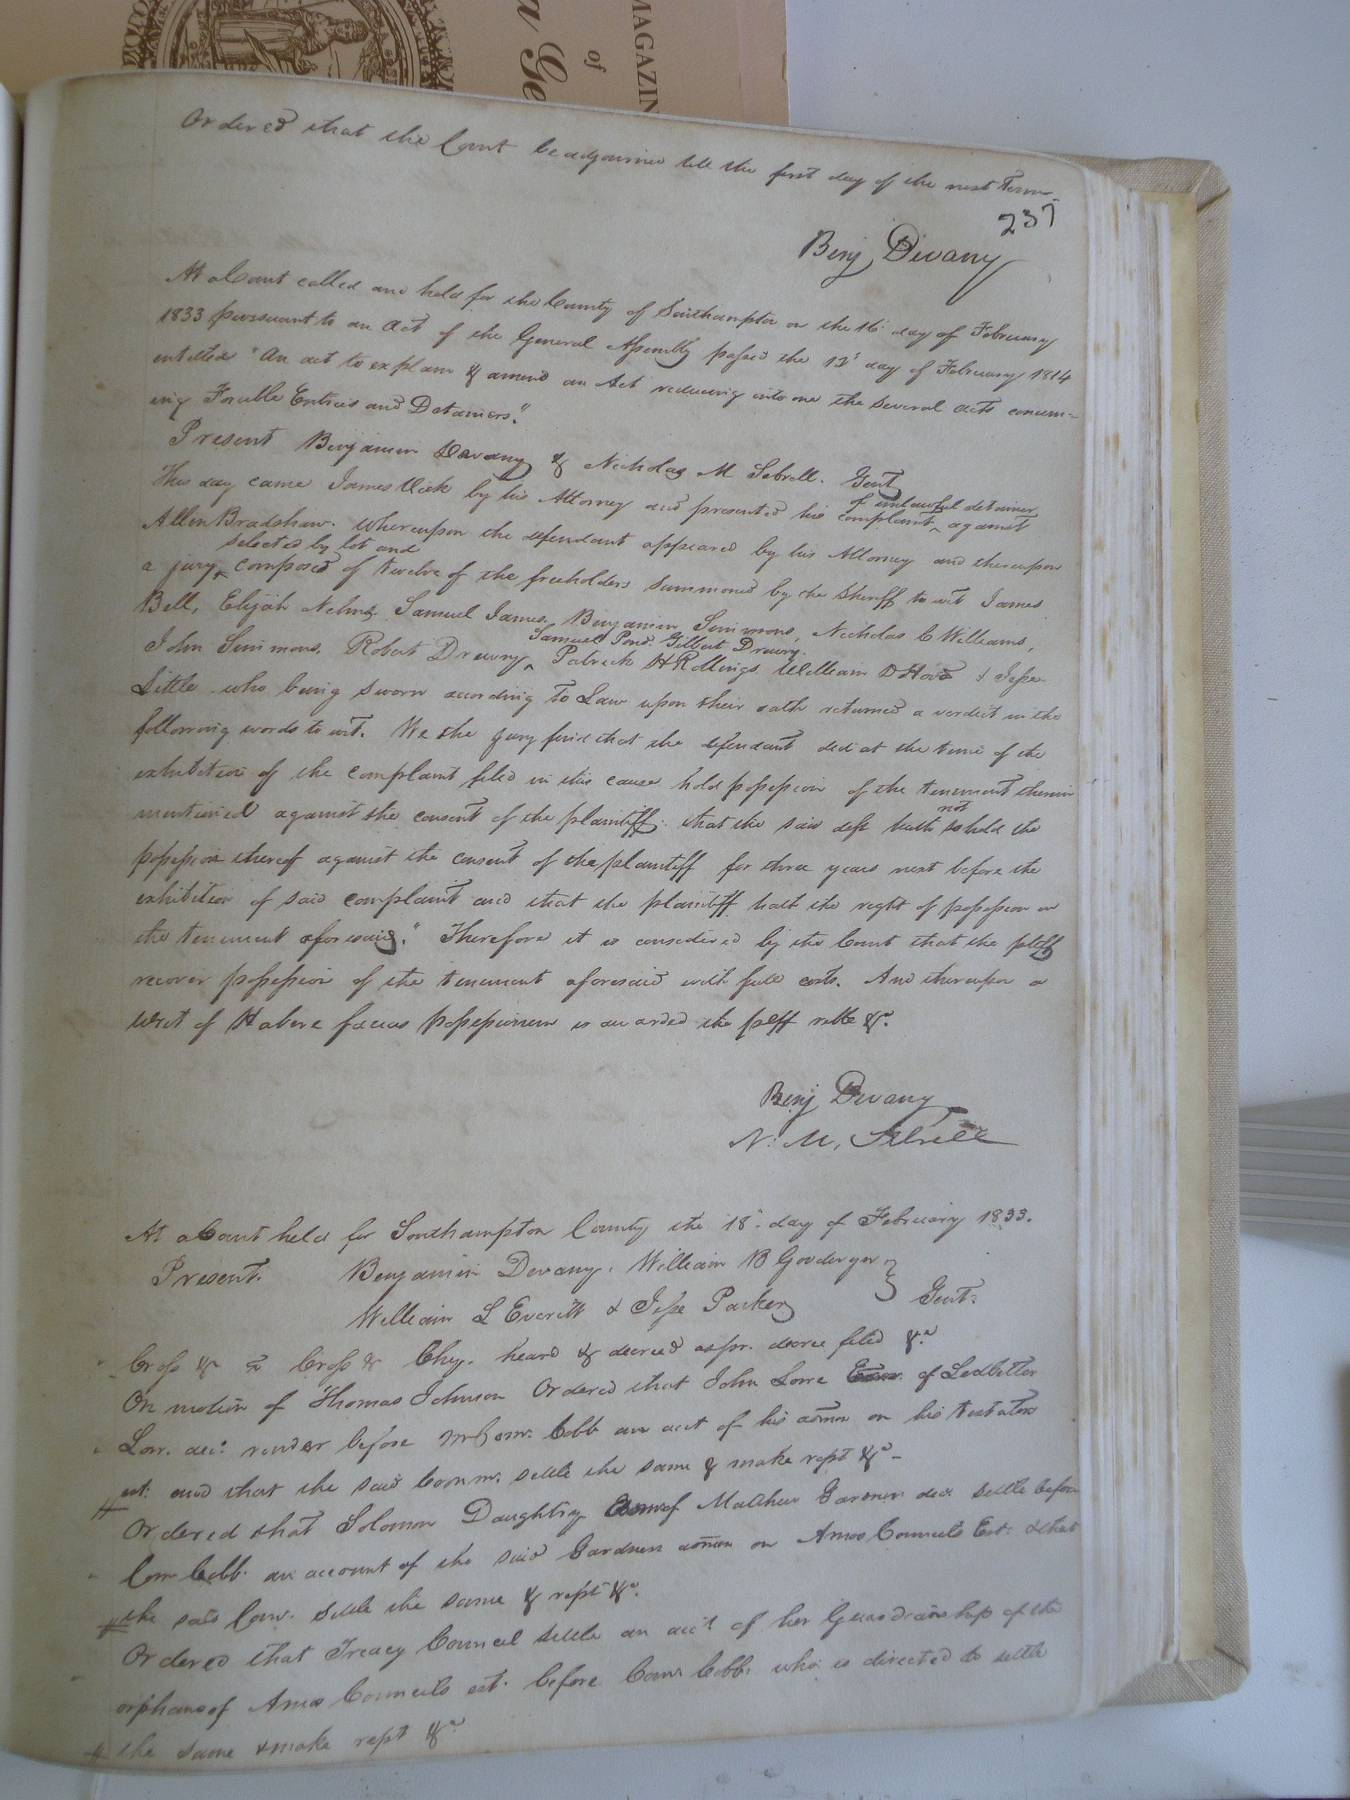 MAGAZIN
of
a Ge
Ordered that the Court be adjourned till the first day of the next Term
237
Benj Devany
At a Court called and held for the County of Southampton on the 16 day of February
1833 pursuant to an Act of the General Assembly passed the 12 day of February 1814
entitled "An act to explain & amend an Act reducing into one the several acts concern=
ing Forcible Entries and Detainers."
Present Benjamin Devany & Nicholas M Sebrell. Gent
This day came James Vick by his Attorney and presented his complaint of unlawful detainer against
Allen Bradshaw. Whereupon the defendant appeared by his Attorney and thereupon
a jury selected by lot and composed of twelve of the freeholders summoned by the Sheriff to wit James
Bell, Elijah Nelms, Samuel James, Benjamin Simmons, Nicholas C Williams,
John Simmons, Robert Drewry, Samuel Pond. Gilbert Drewry. Patrick H Rollings William D Hood & Jesse
Little who being sworn according to Law upon their oath returned a verdict in the
following words to wit. We the jury find that the defendant did at the time of the
exhibition of the complaint filed in this cause hold possession of the tenement therein
mentioned against the consent of the plaintiff: that the said deft hath not so held the
possession thereof against the consent of the plaintiff for three years next before the
exhibition of said complaint and that the plaintiff hath the right of possession in
the tenement aforesaid." Therefore it is considered by the Court that the pltff
recover possession of the tenement aforesaid with full costs. And thereupon a
Writ of Habere facias possessionem is awarded the pltff retble &c.
Benj Devany
N. M. Sebrell
At a Court held for Southampton County the 18 day of February 1833.
Present. Benjamin Devany, William B Goodwyn
William L Everitt & Jesse Parker Gent.
Cross &c vs Cross &c Chy. heard & decreed as pr. decree filed &c
On motion of Thomas Johnson Ordered that John Lowe of Ledbetter
Low. decd. render before Comr. Cobb an acct of his admn on his testators
est. and that the said Comm. settle the same & make rept &c -
Ordered that Solomon Daughtry of Mathew Gardner decd settle before
Com Cobb. an account of the said Gardners admn on Amos Councils Est: & that
the said Com. settle the same & rept &c.
Ordered that Treacy Council settle an acct of her Guardianship of the
orphans of Amos Councils est. before Com Cobb. who is directed to settle
the same & make rept &c